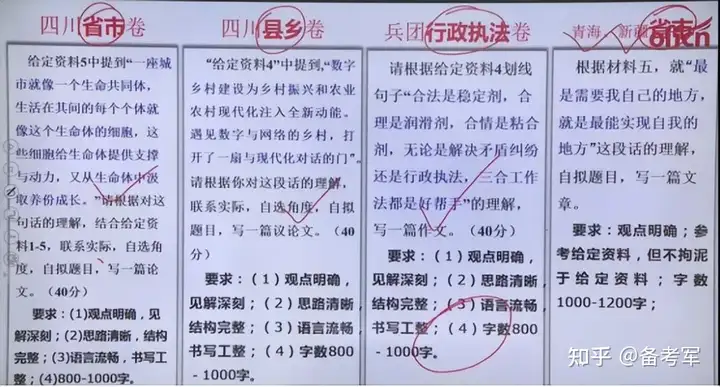 四川省市卷
给定资料5中提到"一座城
市就像一个生命共同体,
生活在其间的每个个体就
像这个生命体的细胞,这
些细胞给生命体提供支撑
与动力,又从生命体中汲
取养份成长。"请根据对这
句话的理解,结合给定资
料1-5,联系实际,自选角
度,自拟题目,写一篇论
文。(40分)
要求:(1)观点明确,见
解深刻;(2)思路清晰,结构
完整;(3)语言流畅,书写工
整;(4)800-1000字。
四川县乡卷
"给定资料4"中提到,"数字
乡村建设为乡村振兴和农业
农村现代化注入全新动能。
遇见数字与网络的乡村,打
开了一扇与现代化对话的门"。
请根据你对这段话的理解,
联系实际,自选角度,自拟
题目,写一篇议论文。(40
分)
要求:(1)观点明确,
见解深刻;(2)思路清晰,
结构完整;(3)语言流畅,
书写工整;(4)字数800
-1000字。
兵团行政执法卷
请根据给定资料4划线
句子"合法是稳定剂,合
理是润滑剂,合情是粘合
剂,无论是解决矛盾纠纷
还是行政执法,三合工作
法都是好帮手"的理解,
写一篇作文。(40分)
要求:(1)观点明确,
见解深刻;(2)思路清晰,
结构完整;(3)语言流畅,
书写工整;(4)字数800
-1000字。
青海、新疆省市
根据材料五,就"最
是需要我自己的地方,
就是最能实现自我的
地方"这段话的理解,
自拟题目,写一篇文
章。
要求:观点明确;参
考给定资料,但不拘泥
于给定资料;字数
1000-1200字;
知乎 @备考军